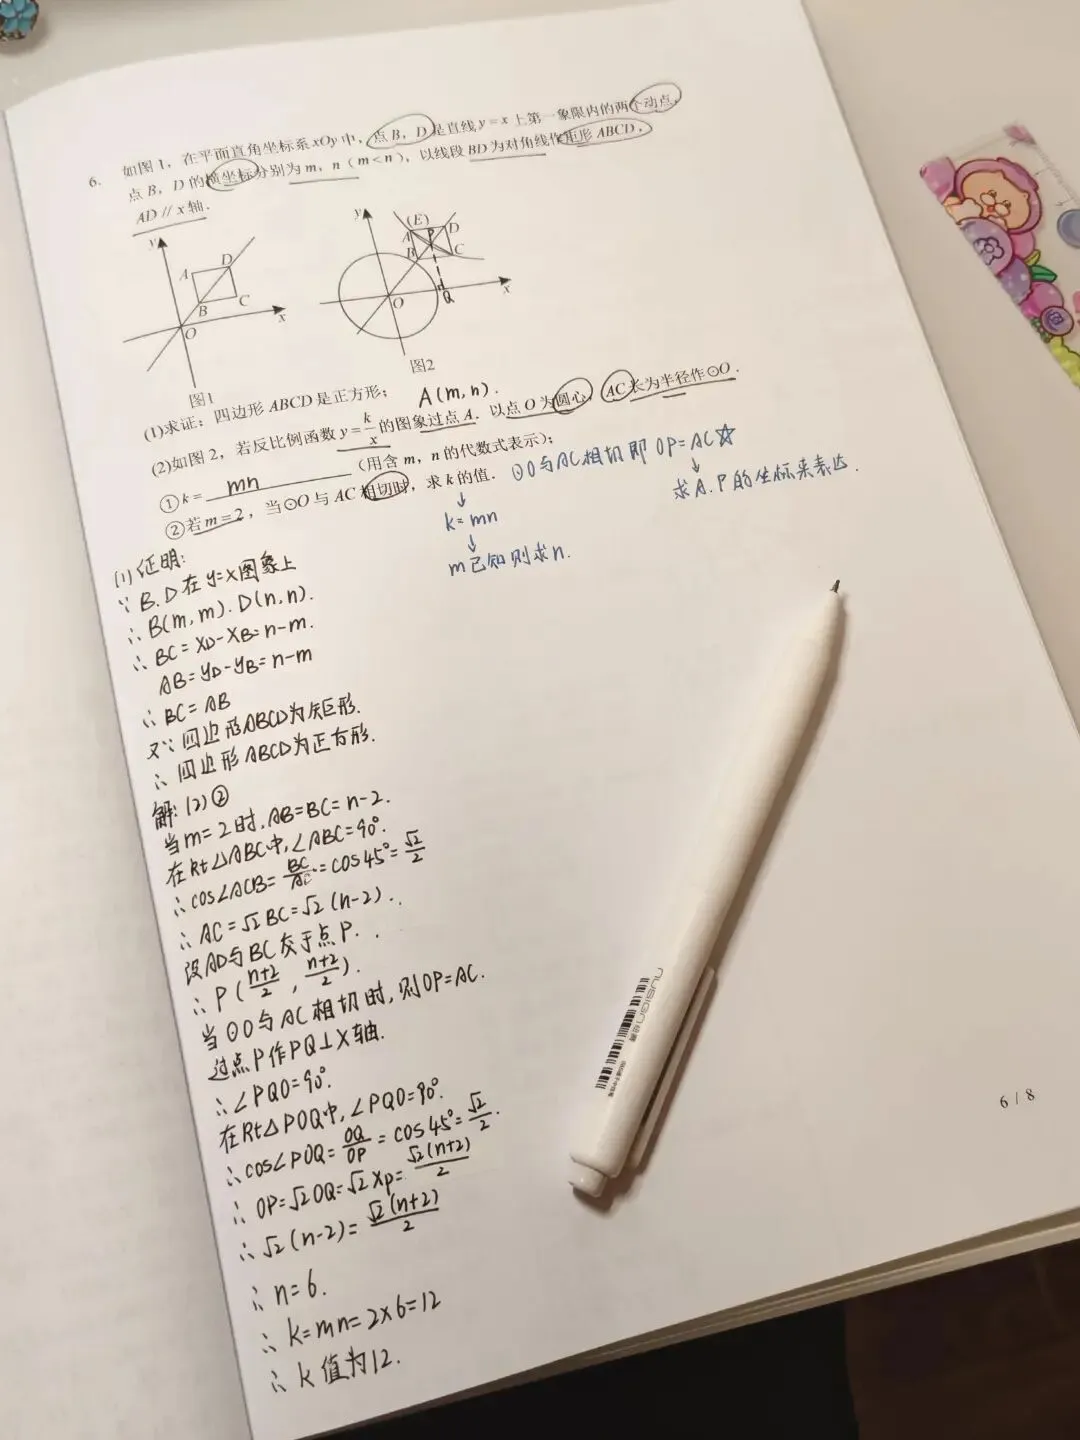 6. 如图1，在平面直角坐标系xOy中，点B，D是直线y=x上第一象限内的两个动点，
点B，D的横坐标分别为m，n（m<n），以线段BD为对角线作矩形ABCD，
AD//x轴．
y
A
D
B
C
O
x
图1
y
(E)
A
P
D
B
C
O
Q
x
图2
(1)求证：四边形ABCD是正方形； A(m,n).
(2)如图2，若反比例函数y=k/x的图象过点A．以点O为圆心，AC长为半径作⊙O．
①k= mn （用含m，n的代数式表示）；
②若m=2，当⊙O与AC相切时，求k的值．
⊙O与AC相切即OP=AC☆
↓
求A.P的坐标来表达.
↓
k=mn
↓
m已知则求n.
(1)证明:
∵B.D在y=x图象上
∴B(m,m).D(n,n).
∴BC=xD-xB=n-m.
AB=yD-yB=n-m
∴BC=AB
又∵四边形ABCD为矩形.
∴四边形ABCD为正方形.
解:(2)②
当m=2时,AB=BC=n-2.
在Rt△ABC中,∠ABC=90°.
∴cos∠ACB=BC/AC=cos45°=√2/2
∴AC=√2BC=√2(n-2).
设AD与BC交于点P.
∴P(n+2/2,n+2/2).
当⊙O与AC相切时,则OP=AC.
过点P作PQ⊥x轴.
∴∠PQO=90°.
在Rt△POQ中,∠PQO=90°.
∴cos∠POQ=OQ/OP=cos45°=√2/2.
∴OP=√2OQ=√2xp=√2(n+2)/2
∴√2(n-2)=√2(n+2)/2
∴n=6.
∴k=mn=2×6=12
∴k值为12.
nusign
6 / 8